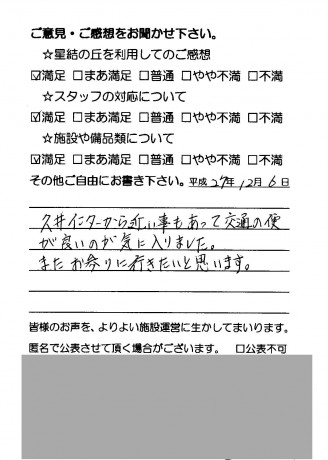 ご意見・ご感想をお聞かせ下さい。
☆星結の丘を利用してのご感想
☑満足 □まあ満足 □普通 □やや不満 □不満
☆スタッフの対応について
☑満足 □まあ満足 □普通 □やや不満 □不満
☆施設や備品類について
☑満足 □まあ満足 □普通 □やや不満 □不満
その他ご自由にお書き下さい。平成27年12月6日
久井インターから近い事もあって交通の便
が良いのが気に入りました。
またお参りに行きたいと思います。
皆様のお声を、よりよい施設運営に生かしてまいります。
匿名で公表させて頂く場合がございます。 □公表不可